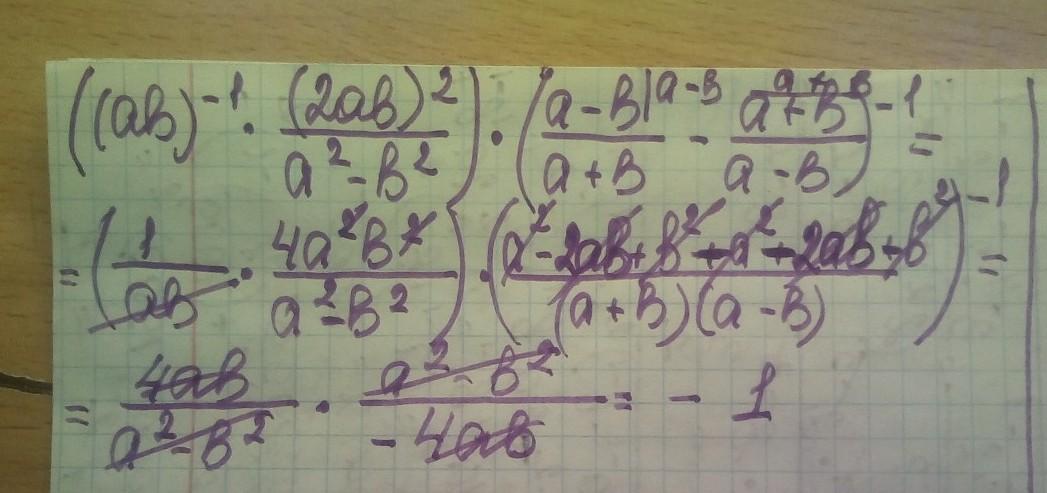 ((ab)⁻¹ · (2ab)² / (a² - b²)) · ((a - b)|ᵃ⁻ᵇ / (a + b) - (a + b)|ᵃ⁺ᵇ / (a - b))⁻¹ =
= (1 / (ab) · 4a²b² / (a² - b²)) · ((a² - 2ab + b² + a² + 2ab + b²) / ((a + b)(a - b)))⁻¹ =
= 4ab / (a² - b²) · (a² - b²) / (-4ab) = - 1